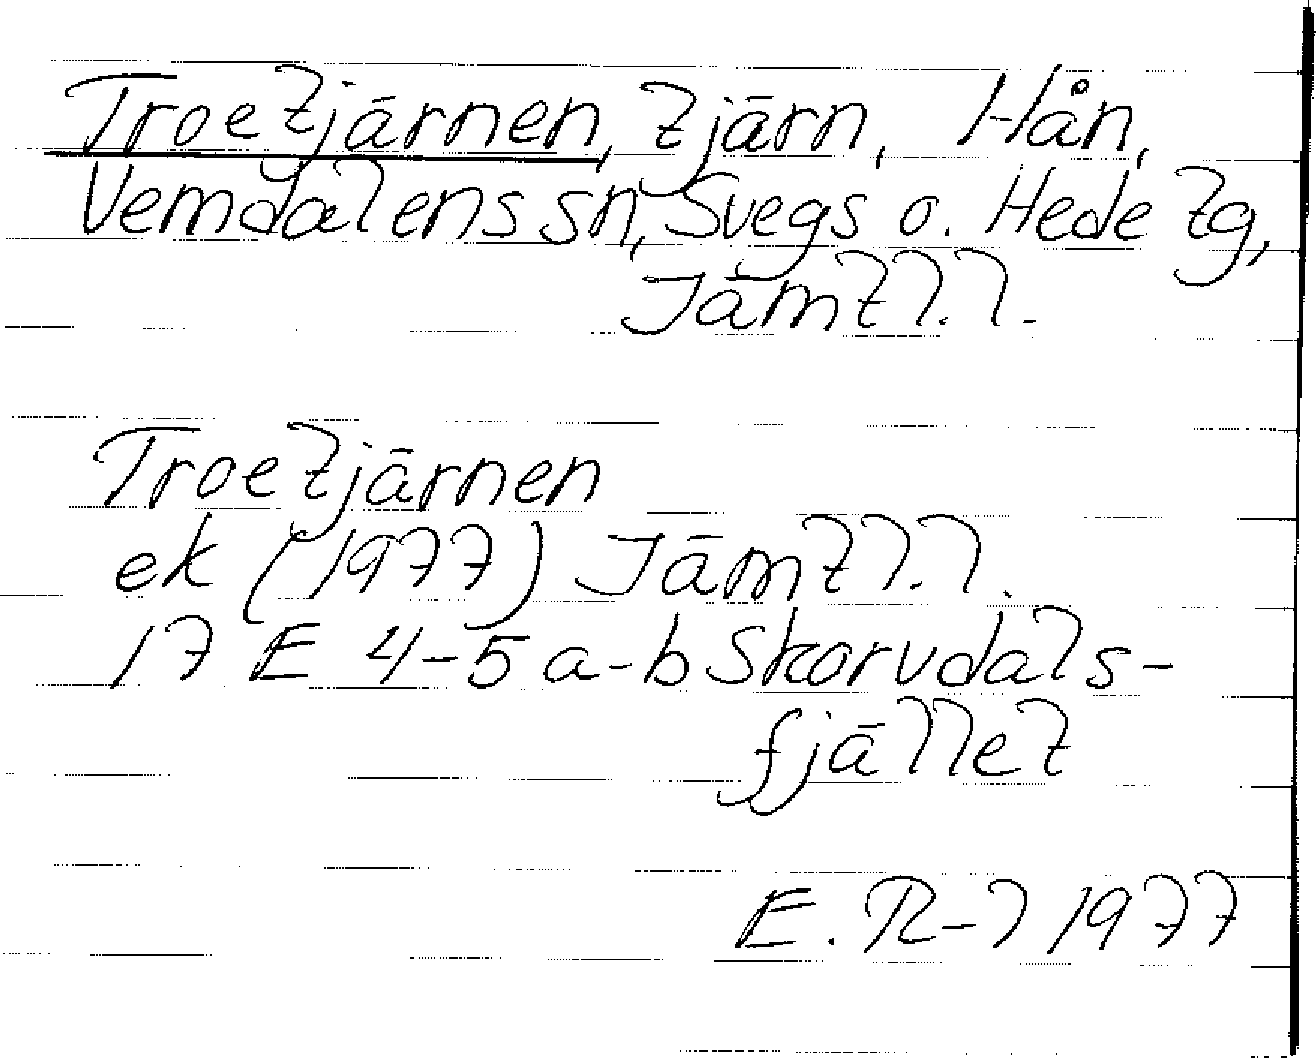 Troetjärnen, tjärn, Hån,
Vemdalens sn, Svegs o. Hede tg,
Jämtl. l.
Troetjärnen
ek (1977) Jämtl. l.
17 E 4-5 a-b Skorvdals-
fjället
E. R-l 1977